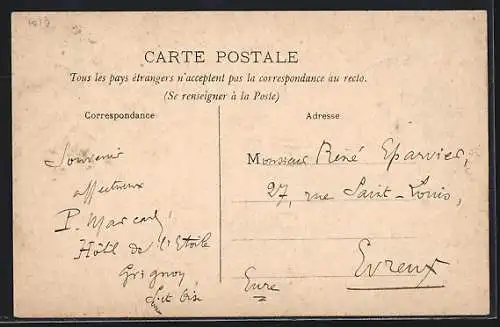 CARTE POSTALE
Tous les pays étrangers n'acceptent pas la correspondance au recto.
(Se renseigner à la Poste)
Correspondance
Adresse
Souvenir
affectueux
P.
Hôtel de l'Etoile
Grignon
Monsieur René Eparvier,
27, rue Saint-Louis,
Evreux
Eure